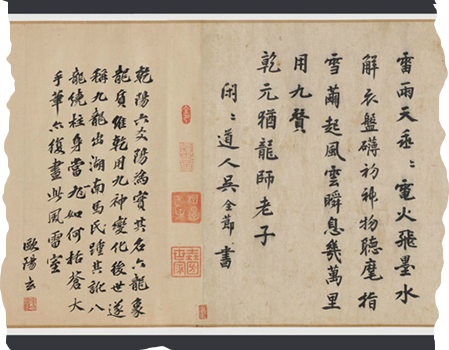 雷雨天垂〻電火飛墨水
解衣盤礴初神物聽麾指
雪繭起風雲瞬息幾萬里
用九贊
乾元猶龍師老子
閑〻道人吳全節書
乾陽六爻陽為實其名六龍象
龍負維乾用九神變化後世遂
稱九龍出湖南馬氏踵其訛八
龍繞柱身當九如何括蒼大
手筆亦復畫此風雷室
歐陽玄